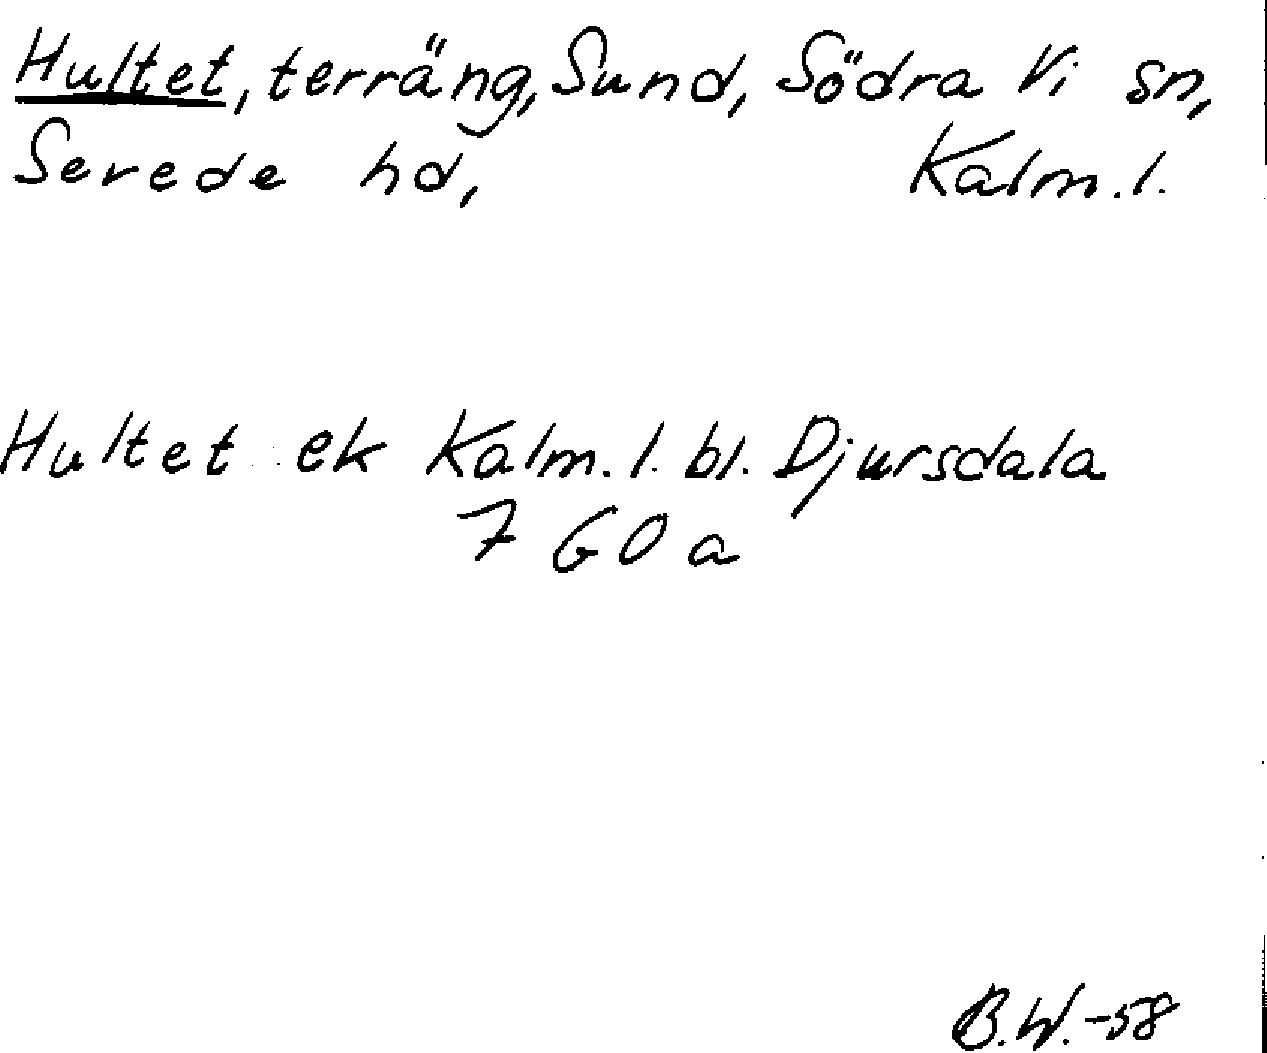 Hultet, terräng, Sund, Södra Vi sn,
Sevede hd, Kalm.l.
Hultet ek Kalm.l. bl. Djursdala
7 GO a
B.W.-58